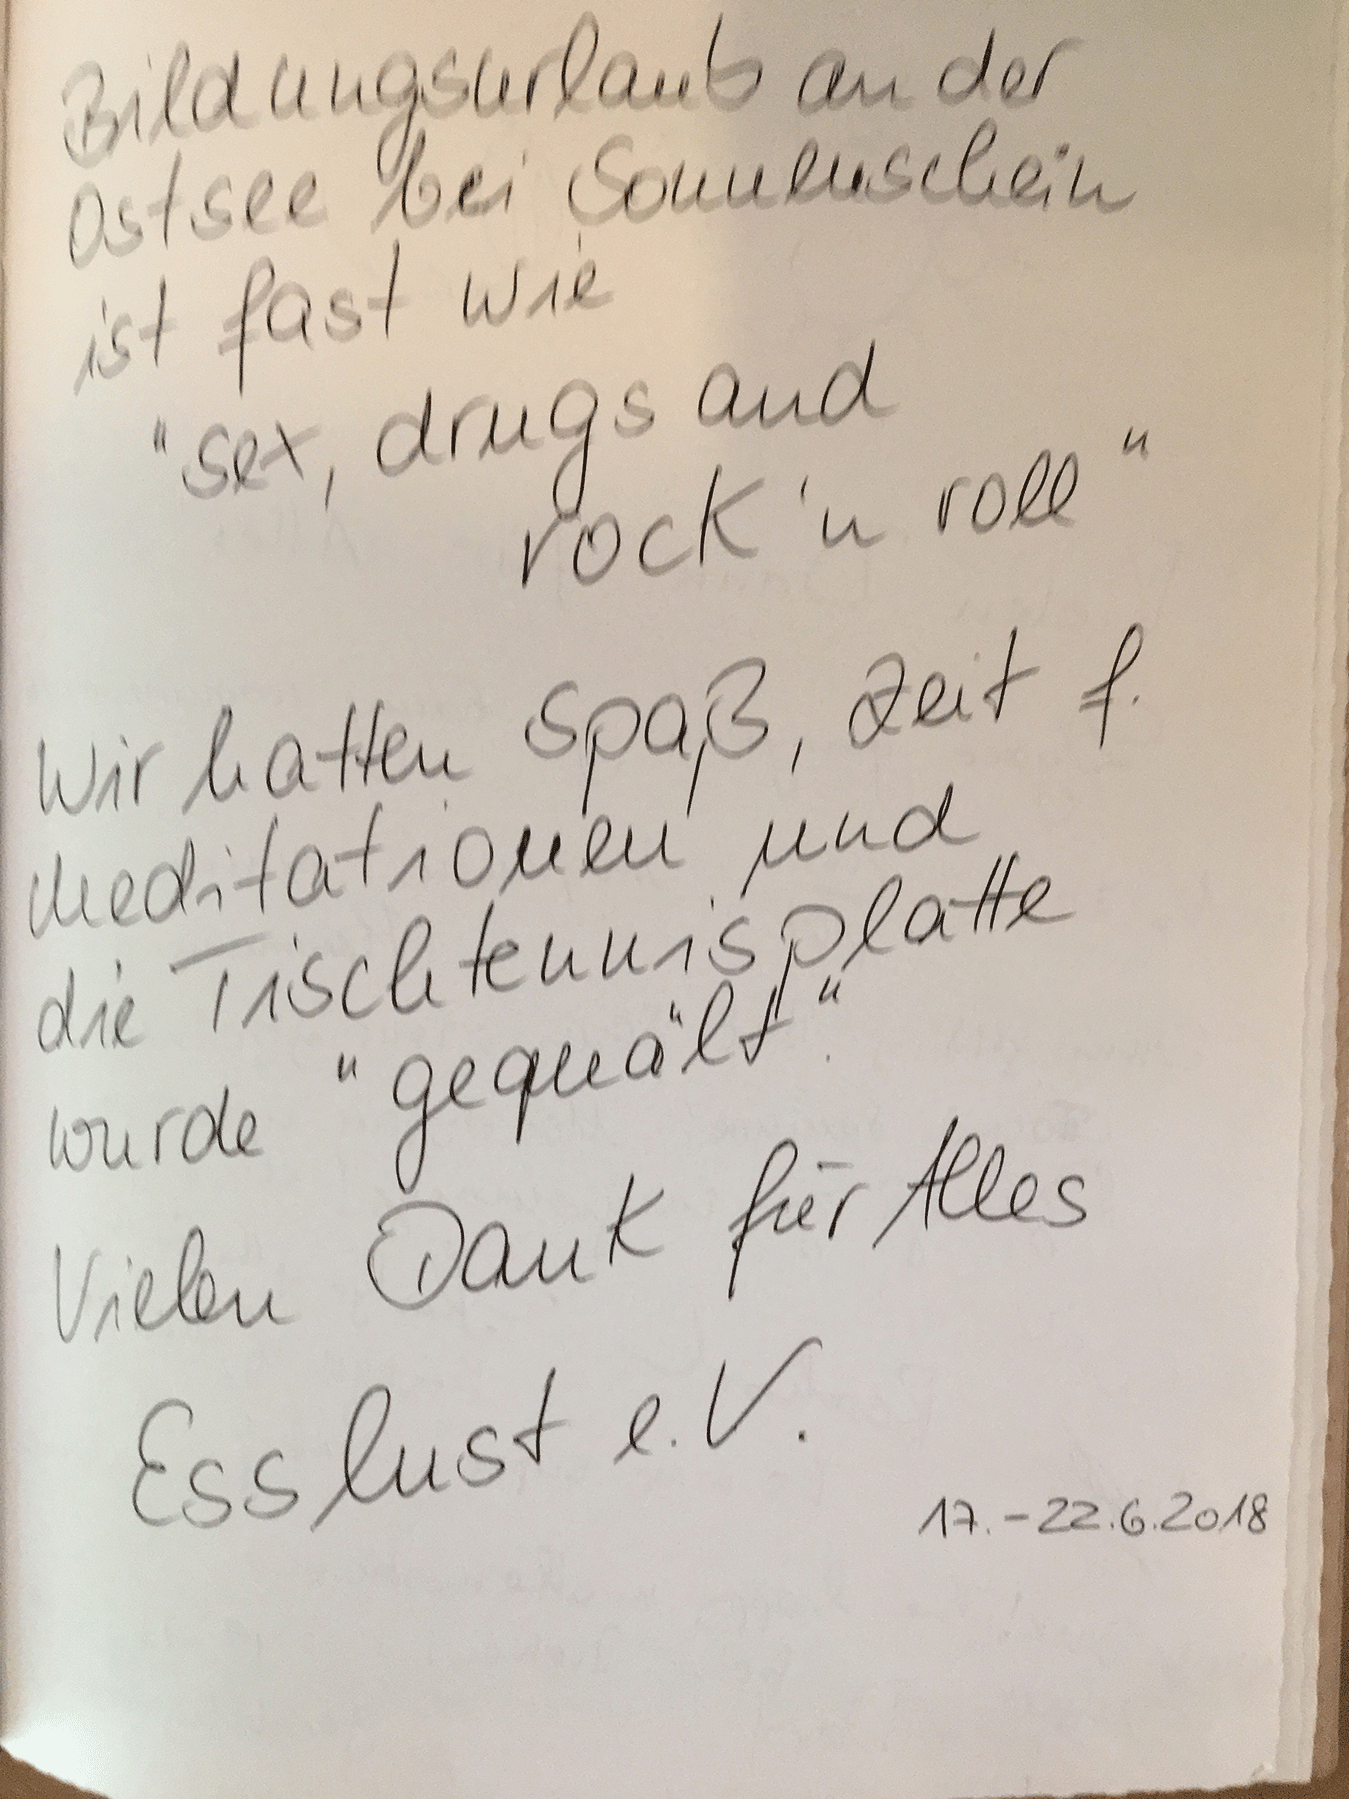 Bildungsurlaub an der
Ostsee bei Sonnenschein
ist fast wie
"sex, drugs and
rock 'n roll"
Wir hatten Spaß, Zeit f.
Meditationen und
die Tischtennisplatte
wurde "gequält".
Vielen Dank für Alles
Esslust e.V.
17.-22.6.2018